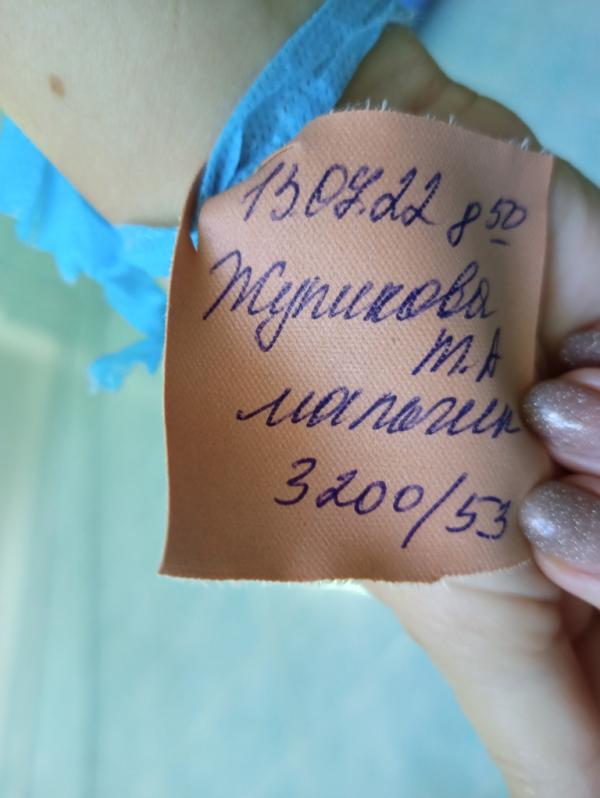 13.07.22 8 50
Журикова
Т.А
мальчик
3200/53